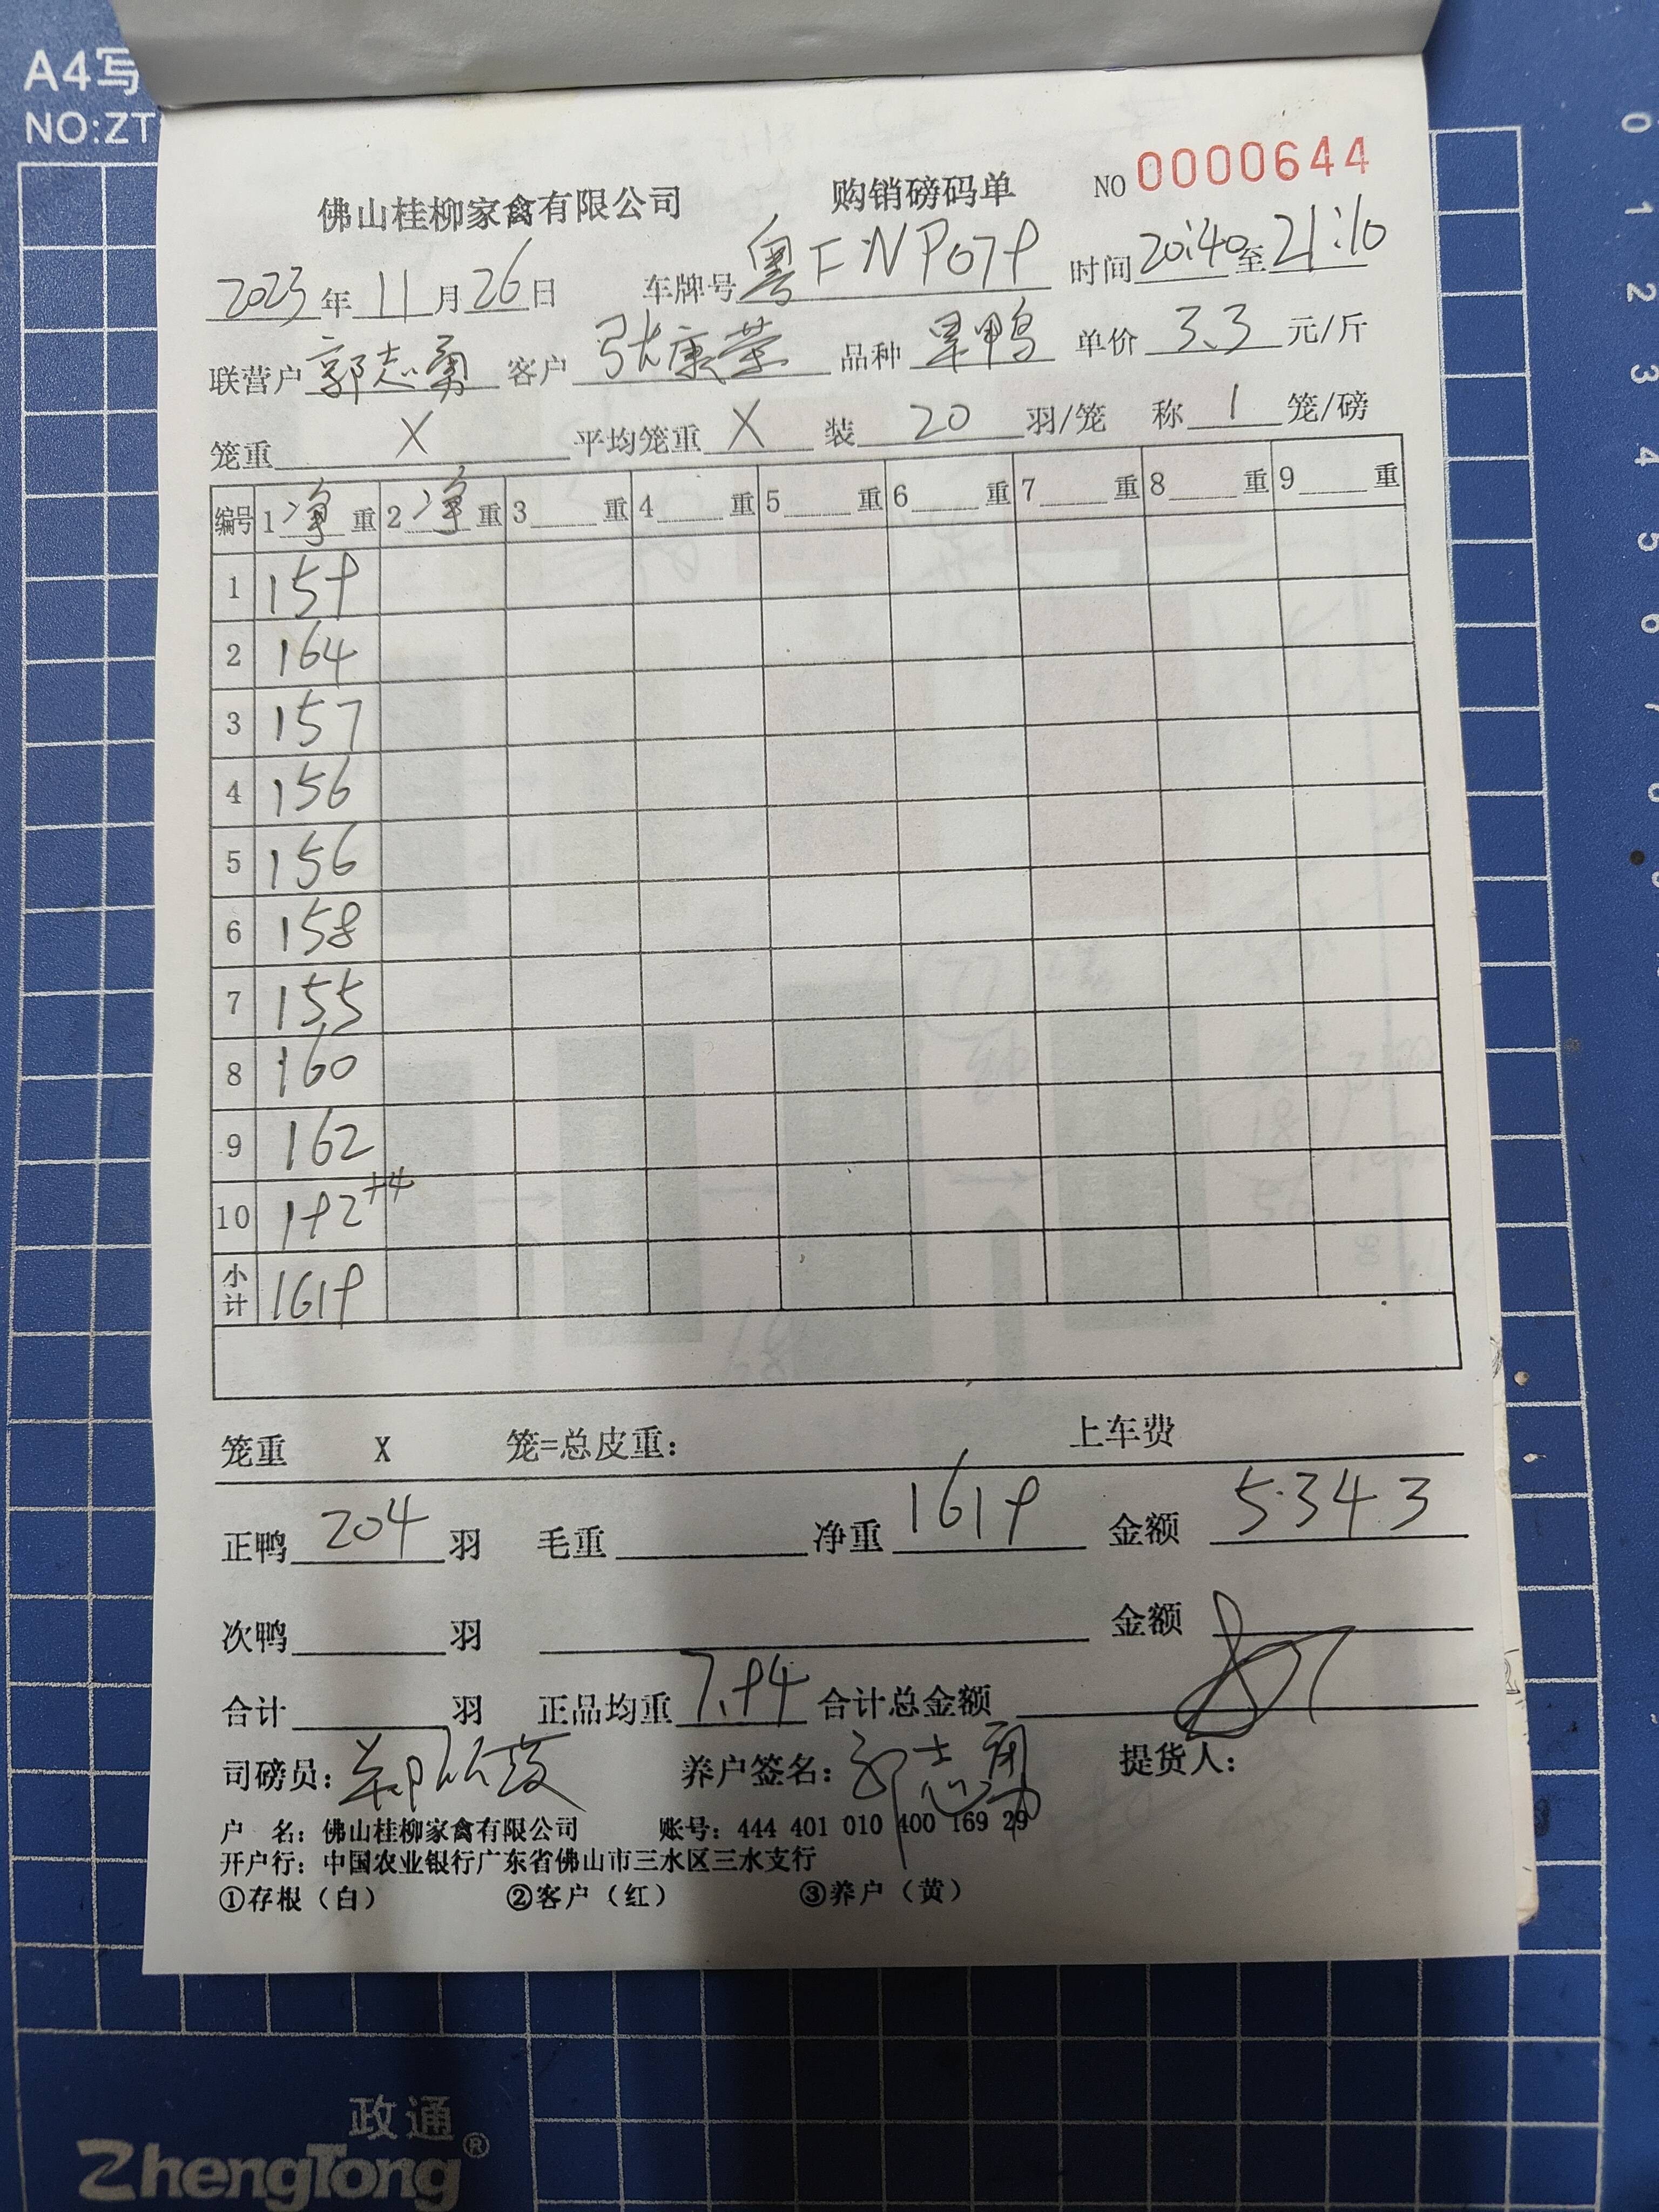 A4写
NO:ZT
佛山桂柳家禽有限公司 购销磅码单 NO 0000644
2023年11月26日 车牌号 粤F·NP079 时间20:40至21:10
联营户 郭志勇 客户 张康荣 品种 旱鸭 单价 3.3 元/斤
笼重 X 平均笼重 X 装 20 羽/笼 称 1 笼/磅
编号 1 净 重 2 净 重 3 重 4 重 5 重 6 重 7 重 8 重 9 重
1 159
2 164
3 157
4 156
5 156
6 158
7 155
8 160
9 162
10 192+4
小计 1619
笼重 X 笼=总皮重: 上车费
正鸭 204 羽 毛重 净重 1619 金额 5343
次鸭 羽 金额
合计 羽 正品均重 7.94 合计总金额
司磅员: 养户签名: 郭志勇 提货人:
户 名: 佛山桂柳家禽有限公司 账号: 444 401 010 400 169 29
开户行: 中国农业银行广东省佛山市三水区三水支行
①存根（白） ②客户（红） ③养户（黄）
政通
ZhengTong®
0
1
2
3
4
5
6
7
8
9